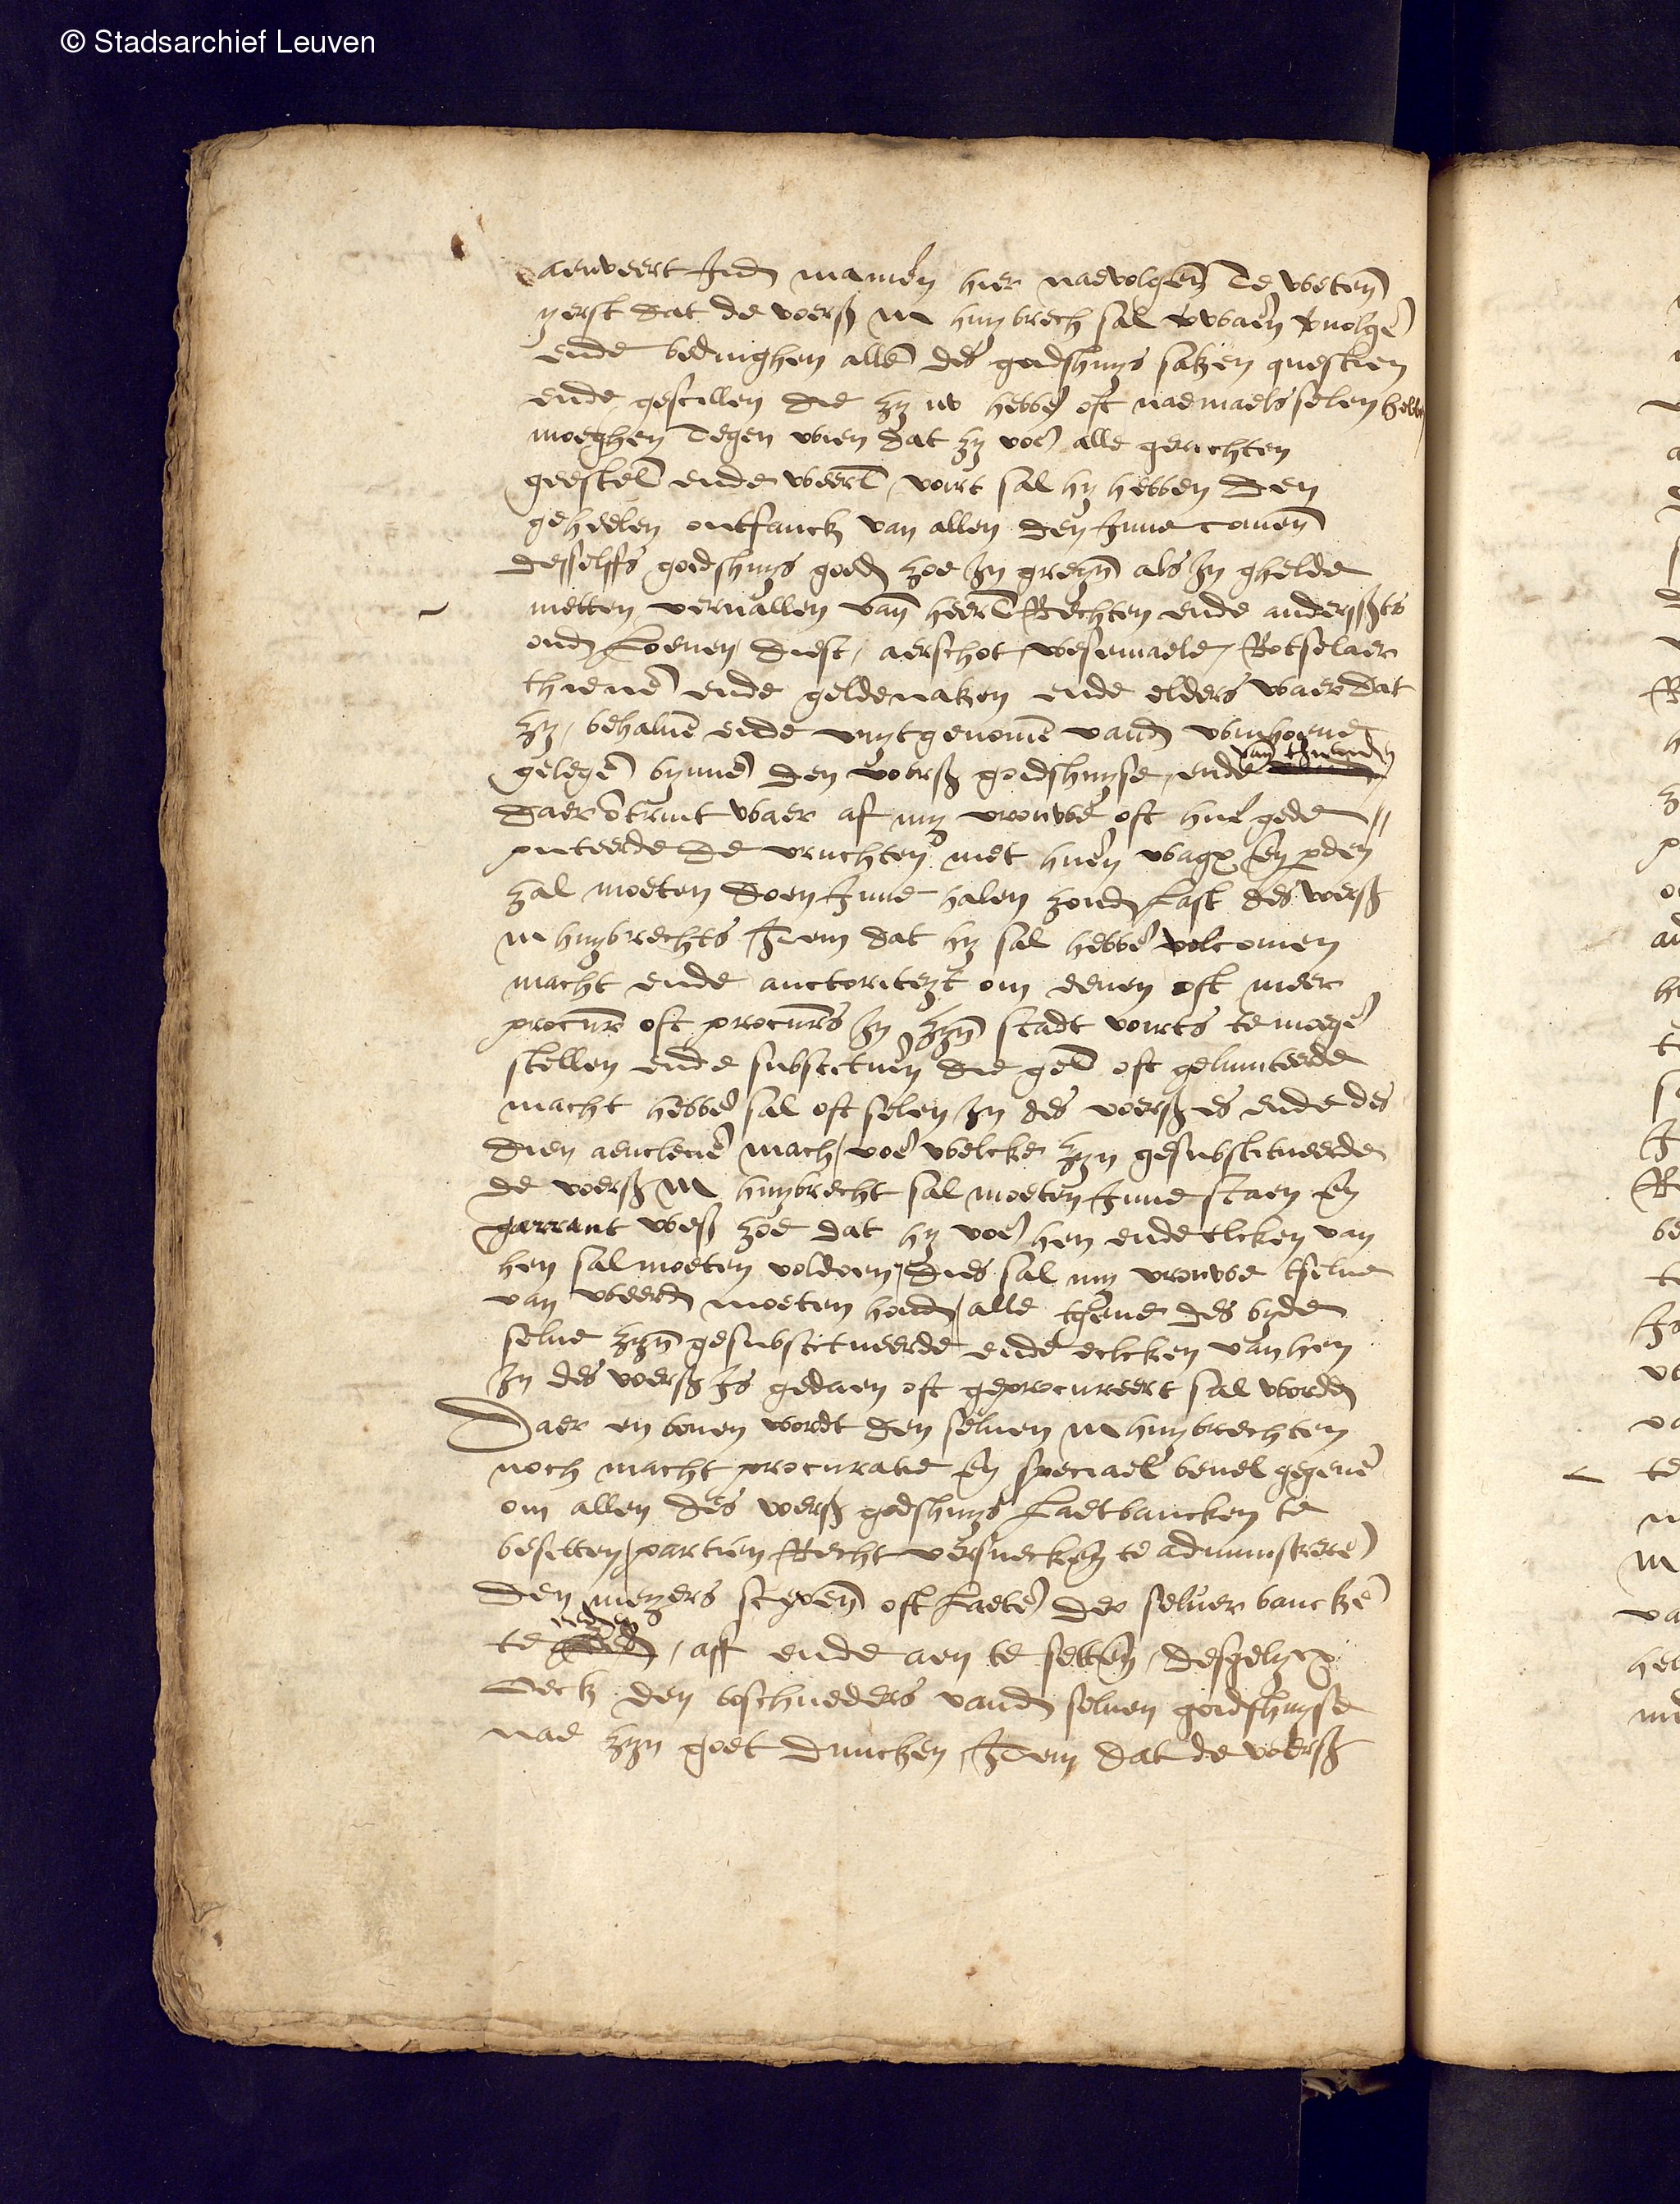 © Stadsarchief Leuven
aenveert Jnd manieren hier naevolgen Te weten
yerst dat de voers M huybrech sal verwaren vervolgen
ende bedinghen alle des godshuys saken questien
ende gescillen die zy nv hebben oft naemaels selen hebben
moeghen Tegen wien dat zy voer alle gerichten
geestel ende weerl / voirt sal hy hebben den
geheelen ontfanck van allen den Jnne comen
desselfs godshuys goed zoe Jn greyn als Jn ghelde
metten vervallen van heerl Rechten ende anderssts
ond Loeven / Diest / aerschot / wesemaele / Rotselaer
thienen ende geldenaken ende elders waer dat
zy / behalve ende vuytgenomen vand wynhove
gelegen bynnen den voers godshuyse / ende van thienden
daer omtrint waer af myn vrouwe oft hue gede
puteerde de vruchten met huen wagen en perden
zal moeten doen Jnne halen zond Last des voers
M huybrechts Jtem dat hy sal hebben volcomen
macht ende auctoriteyt om eenen oft meer
procur oft procurs Jn zyn stadt voirts te mogen
stellen ende substitueren die gel oft gelimiteerde
macht hebben sal oft selen Jn des voers is ende des
dien aencleven mach / voer welcke zyn gesubstitueerde
de voers M huybrecht sal moeten Jnne staen en
garrant wess zoe dat hy voer hen ende elcken van
hen sal moeten voldoen / Dies sal myn vrouwe tselve
van weerd moeten houd / alle tgene des by de
selve zyn gesubstitueerde ende elcken van hen
Jn des voers Js gedaen oft geprocureert sal wordden
Daer en boven wordt den selven M huybrechten
noch macht procuratie en speciael bevel gegeven
om allen des voers godshuys Laetbancken te
besetten / partien Recht versuecken te administreren
den meyers scepen oft Laeten der selver bancken
te eeden / aff ende aen te setten / desgelycx
oeck den boschueders vand selven godshuyse
nae zyn goet duncken / Jtem dat de voers